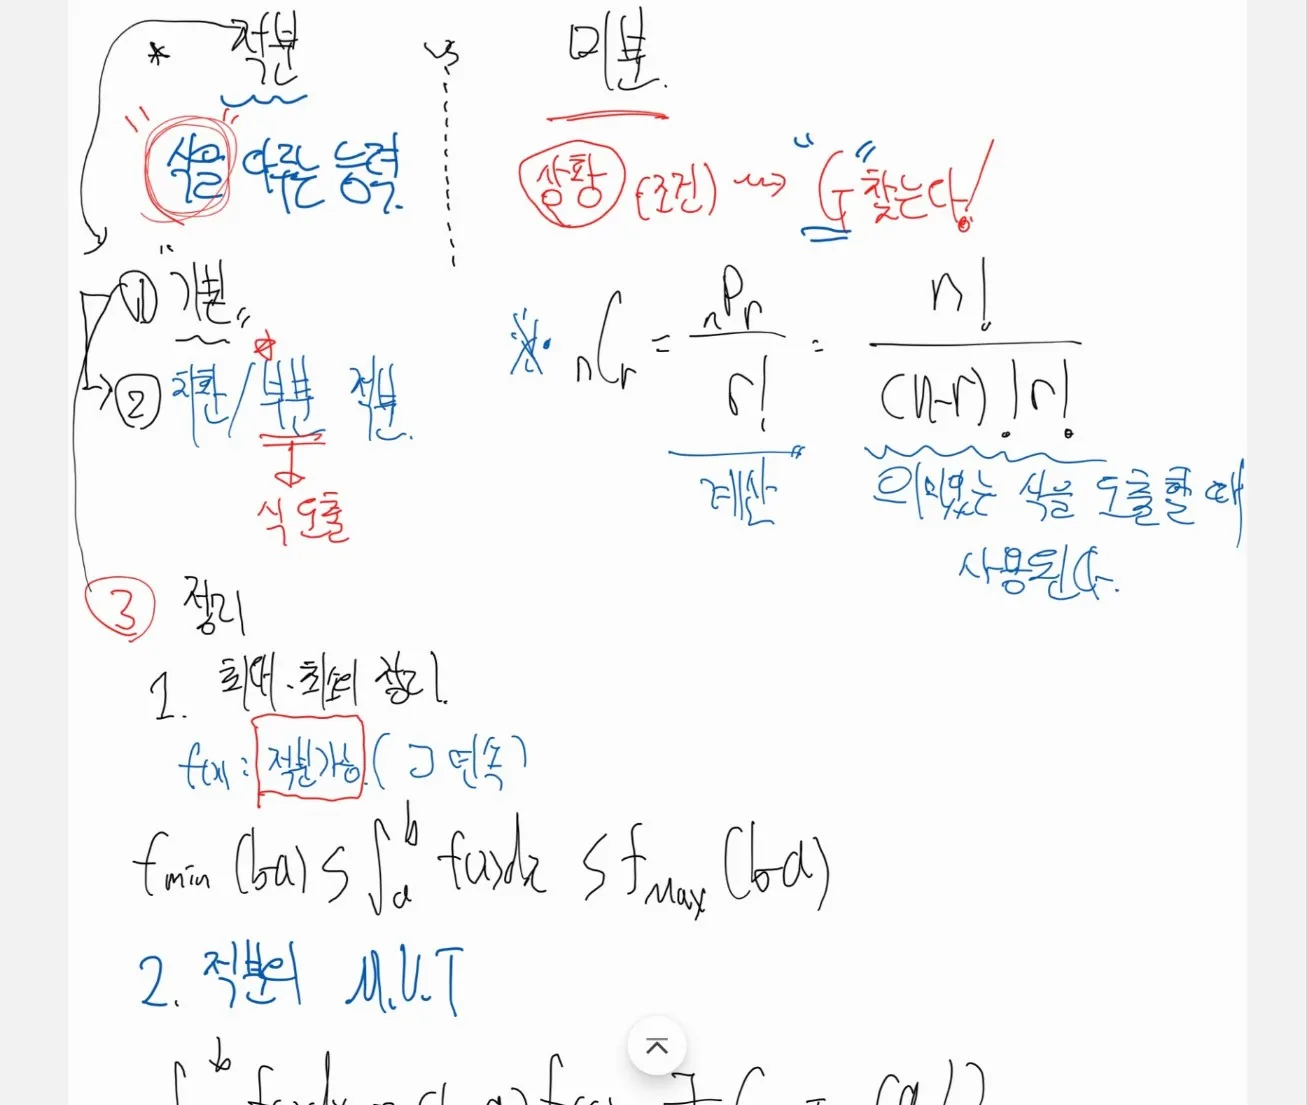 * 적분 vs 미분.
"식을" 다루는 능력.
상황 (조건) ⇝ "G" 찾는다!
① "기본"
② 치환/부분 적분.
식 도출
※. nCr = nPr / r! = n! / (n-r)! r!
계산
의미있는 식을 도출할 때
사용된다.
③ 정리
1. 최대·최소의 정리.
f(x): 적분가능. ( 연속)
f min (b-a) ≤ ∫ₐᵇ f(x)dx ≤ f Max (b-a)
2. 적분의 M.V.T